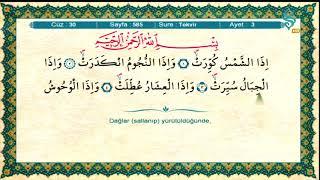 Cüz : 30 Sayfa : 585 Sure : Tekvir Ayet : 3
بِسْمِ اللَّهِ الرَّحْمَنِ الرَّحِيمِ
اِذَا الشَّمْسُ كُوِّرَتْۙ ١ وَاِذَا النُّجُومُ انْكَدَرَتْۙ ٢ وَاِذَا
الْجِبَالُ سُيِّرَتْۙ ٣ وَاِذَا الْعِشَارُ عُطِّلَتْۙ ٤ وَاِذَا الْوُحُوشُ
Dağlar (sallanıp) yürütüldüğünde,